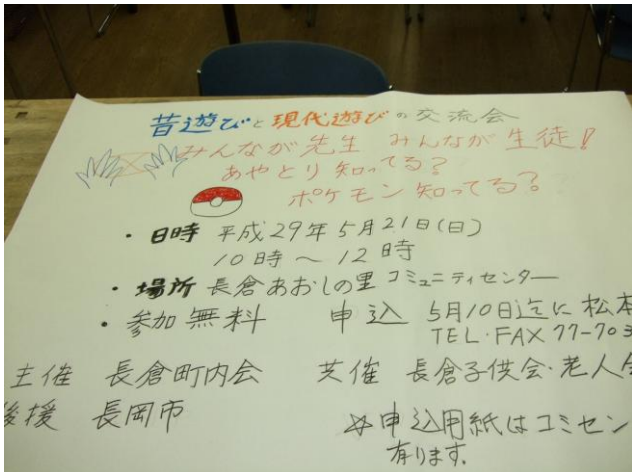 昔遊びと現代遊びの交流会
みんなが先生 みんなが生徒!
あやとり知ってる?
ポケモン知ってる?
・日時 平成29年5月21日(日)
10時~12時
・場所 長倉あおしの里コミュニティセンター
・参加無料 申込 5月10日迄に 松本
TEL・FAX 77-703
主催 長倉町内会 共催 長倉子供会・老人会
後援 長岡市 ☆申込用紙はコミセン
有ります。